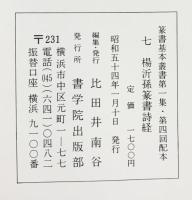 篆書基本叢書第一集・第四回配本
七 楊沂孫篆書詩経
定価 一七〇〇円
昭和五十四年一月十日 発行
編集・発行 比田井南谷
発行所 書学院出版部
〒231 横浜市中区元町一—七七
電話(045)(六四一)〇四八二
振替口座 横浜 九一〇〇番